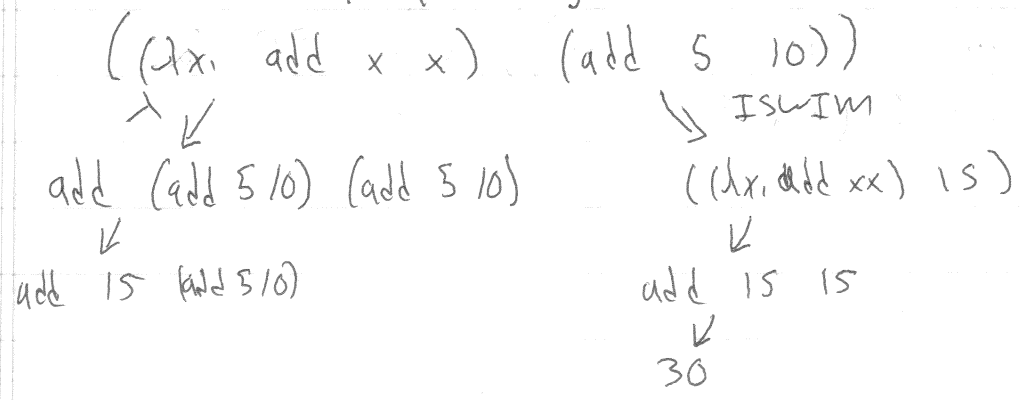 ((λx. add x x) (add 5 10))
λ ISWIM
add (add 5 10) (add 5 10) ((λx. add xx) 15)
add 15 (add 5 10) add 15 15
30